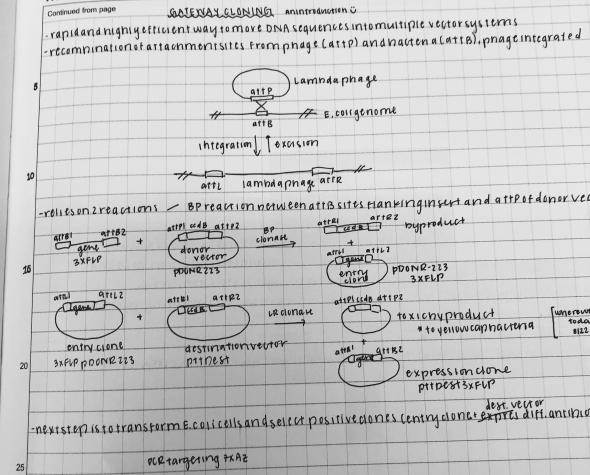 Continued from page
GATEWAY CLONING an introduction
- rapid and highly efficient way to move DNA sequences into multiple vector systems
- recombination of attachment sites from phage (attP) and bacteria (attB), phage integrated
5
attP
Lambda phage
attB
E. coli genome
integration
excision
10
attL
lambda phage
attR
- relies on 2 reactions / BP reaction between attB sites flanking insert and attP of donor vec
attB1
gene
attB2
3xFLP
+
attP1 ccdB attP2
donor vector
pDONR 223
BP clonase
attR1
ccdB
attR2
byproduct
+
attL1
gene
attL2
entry clone
pDONR-223
3xFLP
15
attL1
gene
attL2
entry clone
3xFLP pDONR 223
+
attR1
ccdB
attR2
destination vector
pTTDest
LR clonase
attP1 ccdB attP2
toxic byproduct
* to yellow cap bacteria
toda
8122
+
attB1
gene
attB2
expression clone
pTTDest 3xFLP
20
dest. vector
- next step is to transform E. coli cells and select positive clones (entry clone + expres diff. antibio
PCR targeting
25